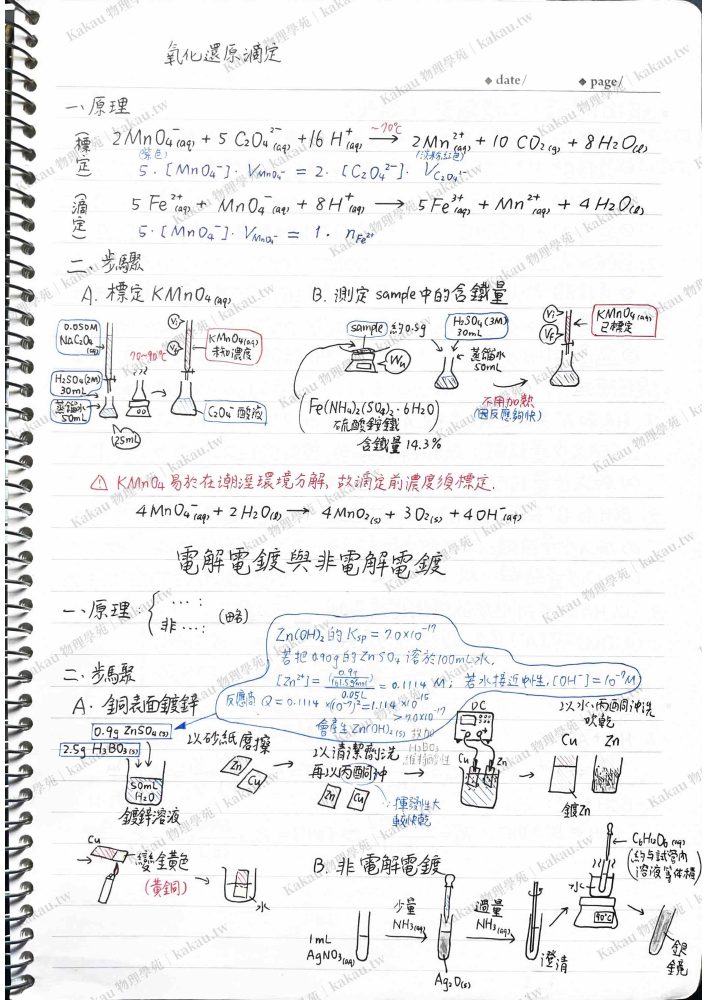 氧化還原滴定
◆ date/ ◆ page/
一、原理
(標定) 2MnO₄⁻(aq) + 5C₂O₄²⁻(aq) + 16H⁺(aq) ~70°C → 2Mn²⁺(aq) + 10CO₂(g) + 8H₂O(l)
(紫色) (淡粉紅色)
5·[MnO₄⁻]·V MnO₄⁻ = 2·[C₂O₄²⁻]·V C₂O₄²⁻
(滴定) 5Fe²⁺(aq) + MnO₄⁻(aq) + 8H⁺(aq) → 5Fe³⁺(aq) + Mn²⁺(aq) + 4H₂O(l)
5·[MnO₄⁻]·V MnO₄⁻ = 1·n Fe²⁺
二、步驟
A. 標定 KMnO₄(aq)
0.050M
NaC₂O₄
(aq)
H₂SO₄(2M)
30mL
蒸餾水
50mL
25mL
70~90°C
Vi
Vf
KMnO₄(aq)
未知濃度
C₂O₄²⁻酸液
B. 測定 sample 中的含鐵量
sample 約0.5g
H₂SO₄(3M)
30mL
蒸餾水
50mL
Vi
Vf
KMnO₄(aq)
已標定
不用加熱
(因反應夠快)
Fe(NH₄)₂(SO₄)₂·6H₂O
硫酸銨鐵
含鐵量 14.3%
⚠ KMnO₄ 易於在潮溼環境分解，故滴定前濃度須標定.
4MnO₄⁻(aq) + 2H₂O(l) → 4MnO₂(s) + 3O₂(s) + 4OH⁻(aq)
電解電鍍與非電解電鍍
一、原理 { … :
非… : (略)
Zn(OH)₂ 的 Ksp = 7.0×10⁻¹⁷
若把 0.90g 的 ZnSO₄ 溶於100mL水,
[Zn²⁺] = 0.9g / (161.5g/mol) / 0.05L = 0.1114 M; 若水接近中性, [OH⁻] = 10⁻⁷M
反應商 Q = 0.1114×(10⁻⁷)² = 1.114×10⁻¹⁵
> 7.0×10⁻¹⁷
會產生 Zn(OH)₂(s) 故加
H₃BO₃
維持酸性
二、步驟
A. 銅表面鍍鋅
0.9g ZnSO₄(s)
2.5g H₃BO₃(s)
50mL
H₂O
鍍鋅溶液
以砂紙磨擦
Zn
Cu
以清潔劑洗
再以丙酮沖
Zn
Cu
∵揮發性大
較快乾
DC
e⁻
e⁻
Cu
Zn
以水、丙酮沖洗
吹乾
Cu Zn
鍍Zn
Cu
變金黃色
(黃銅)
水
B. 非電解電鍍
1mL
AgNO₃(aq)
少量
NH₃(aq)
Ag₂O(s)
過量
NH₃(aq)
澄清
水
90°C
C₆H₁₂O₆(aq)
(約与試管內
溶液等体積)
銀鏡
Kakau 物理學苑 | kakau.tw